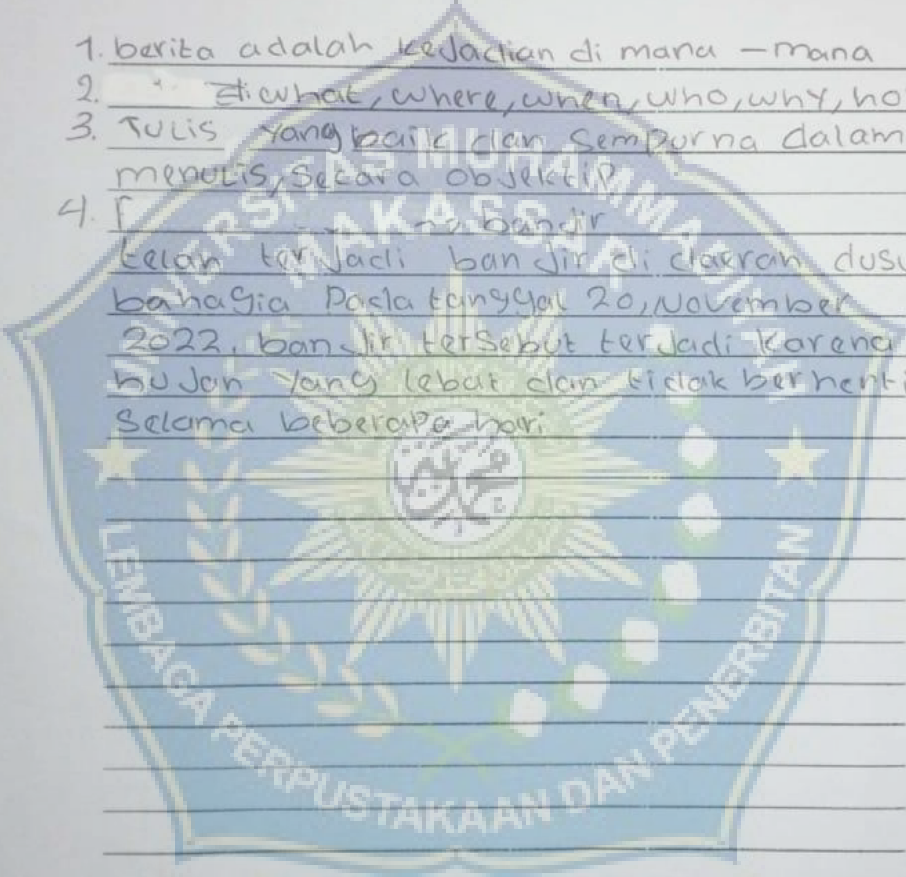 1. berita adalah kejadian di mana - mana
2. what, where, when, who, why, ho
3. Tulis yang baik dan sempurna dalam
menulis, secara objektif
4. bandir
telah terjadi banjir di daerah dusu
bahagia pada tanggal 20, November
2022. banjir tersebut terjadi karena
hujan yang lebat dan tidak berhenti
selama beberapa hari
UNIVERSITAS MUHAMMADIYAH
MAKASSAR
محمد
LEMBAGA PERPUSTAKAAN DAN PENERBITAN